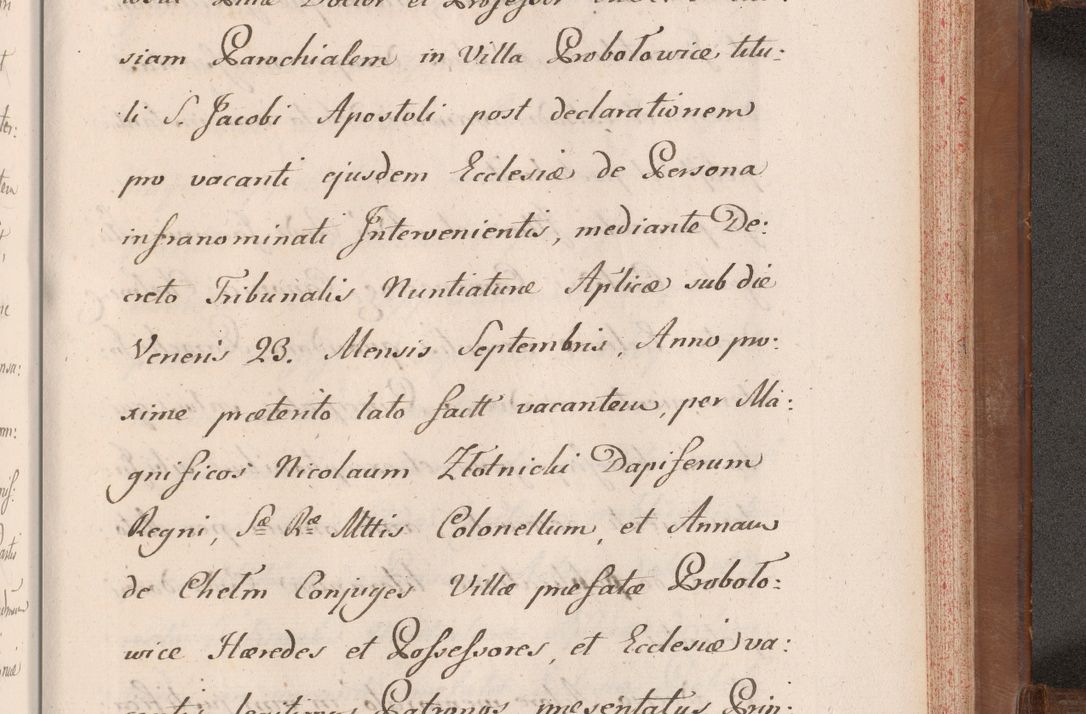 siam Parochialem in Villa Probołowice titu:
li S. Jacobi Apostoli post declarationem
pro vacanti ejusdem Ecclesiæ de Persona
infranominati Intervenientis, mediante De:
creto Tribunalis Nuntiaturæ Aplicæ sub die
Veneris 23. Mensis Septembris, Anno pro:
xime præterito lato factt vacantem, per Ma:
gnificos Nicolaum Złotnicki Dapiferum
Regni, Sæ Ræ Mttis Colonellum, et Annam
de Chełm Conjuges Villæ præfatæ Proboło:
wice Hæredes et Possessores, et Ecclesiæ va:
legitimos Patronos præsentatus Prin: